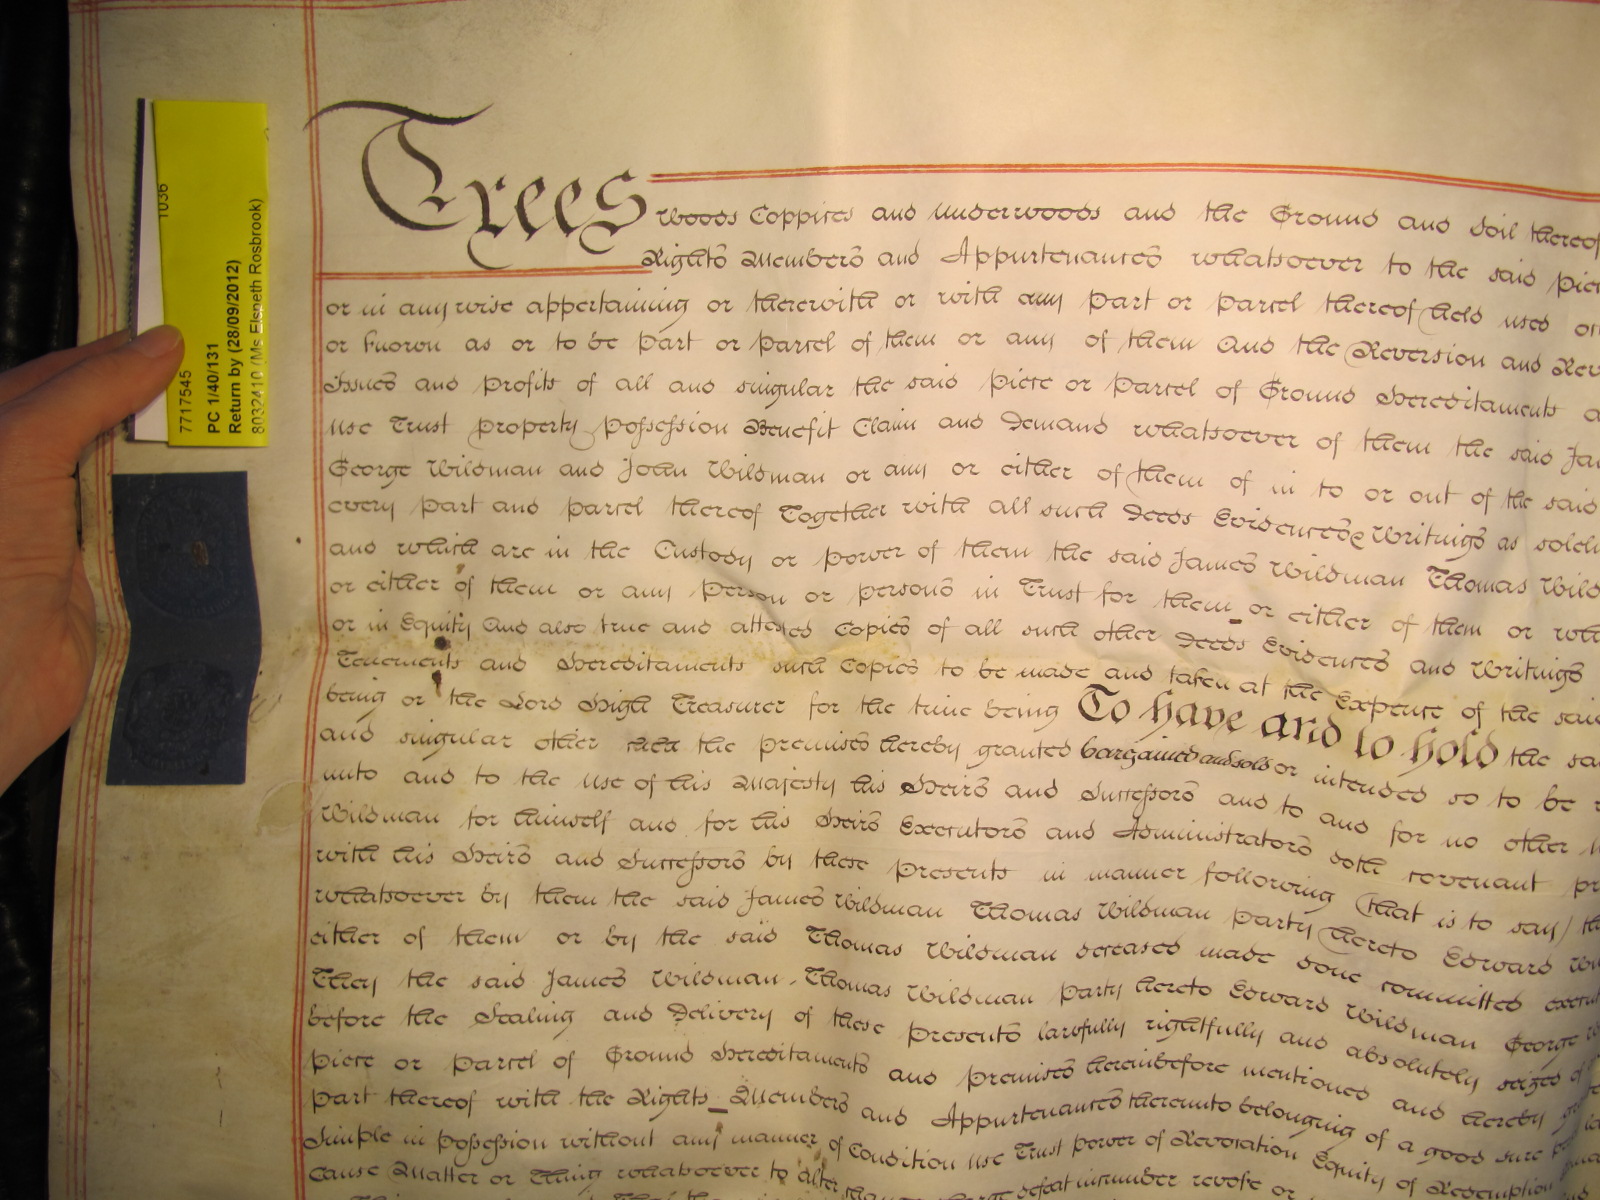 1036
7717545
PC 1/40/131
Return by (28/09/2012)
8032410 (Ms Elspeth Rosbrook)
Trees Woods Coppices and Underwoods and the Ground and Soil thereof
Rights Members and Appurtenances whatsoever to the said
or in any wise appertaining or therewith or with any part or parcel thereof held used or
or known as or to be part or parcel of them or any of them And the Reversion and
Issues and profits of all and singular the said piece or parcel of Ground Hereditaments
use Trust property possession Benefit Claim and Demand whatsoever of them the said
George Wildman and John Wildman or any or either of them of in to or out of the said
every part and parcel thereof Together with all such Deeds Evidences & Writings as
and which are in the Custody or power of them the said James Wildman Thomas
or either of them or any person or persons in Trust for them or either of them or
or in Equity And also true and attested Copies of all such other Deeds Evidences and Writings
Tenements and Hereditaments such Copies to be made and taken at the Expence of the said
being or the Lord High Treasurer for the time being To have and to hold the
and singular other the premises hereby granted bargained and sold or intended so to be
unto and to the use of his Majesty his Heirs and Successors and to and for no other
Wildman for himself and for his Heirs Executors and Administrators doth covenant
with his Heirs and Successors by these presents in manner following (that is to say)
whatsoever by them the said James Wildman Thomas Wildman party hereto Edward
either of them or by the said Thomas Wildman deceased made done committed
They the said James Wildman Thomas Wildman party hereto Edward Wildman George
before the Sealing and Delivery of these presents lawfully rightfully and absolutely seized of
piece or parcel of Ground Hereditaments and premises hereinbefore mentioned and hereby
part thereof with the Rights Members and Appurtenances thereunto belonging of a good sure
Simple in possession without any manner of Condition use Trust power of Revocation Equity of Redemption
Cause Matter or Thing whatsoever to alter change defeat incumber revoke or